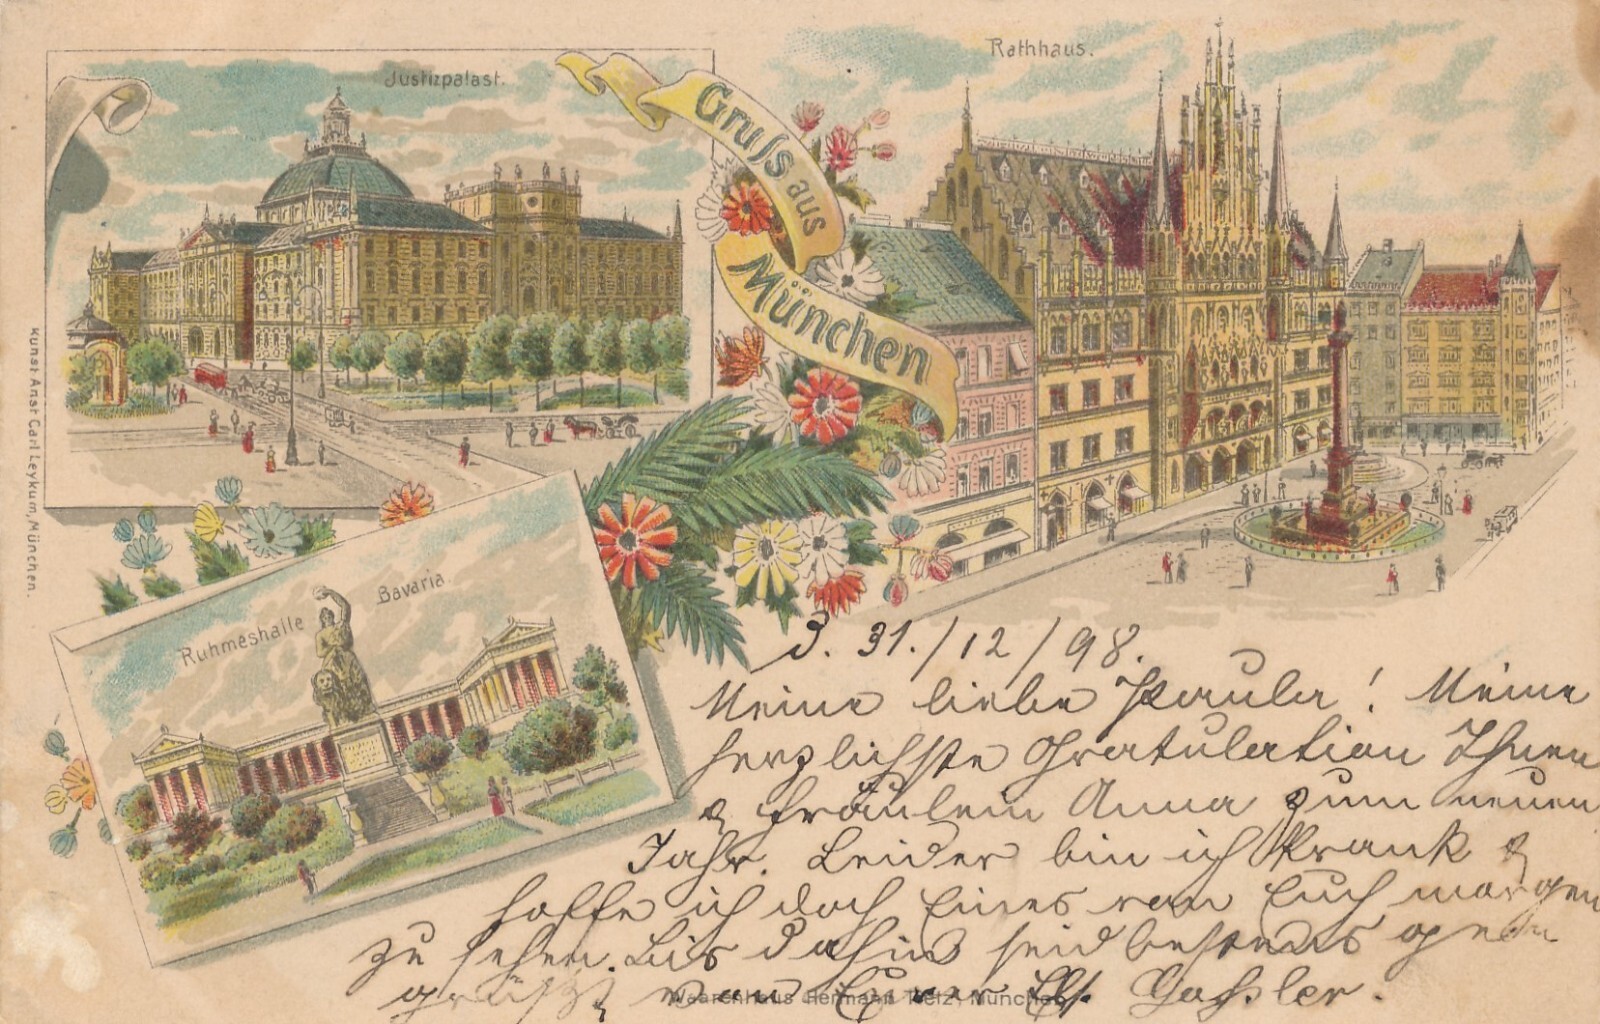 Justizpalast.
Rathhaus.
Gruſs aus
München
Kunst-Anst. Carl Leykum, München.
Ruhmeshalle
Bavaria.
31./12/98.
Meine liebe Paula! Meine
herzlichste Gratulation Ihnen
& Fräulein Anna zum neuen
Jahr. Leider bin ich krank &
hoffe ich doch Eines von Euch morgen
zu sehen. Bis dahin seid bestens
grüßt von Eurer Gaßler.
Waarenhaus Hermann Tietz, München